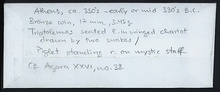 Athens, ca. 350's - early or mid 330's B.C.
Bronze coin, 17 mm, 3.43 g.
Triptolemos seated l. in winged chariot
drawn by two snakes /
Piglet standing r. on mystic staff
Cf. Agora XXVI, no. 38